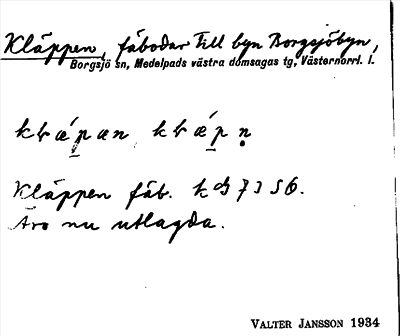 Kläppen, fäbodar till byn Borgsjöbyn,
Borgsjö sn, Medelpads västra domsagas tg, Västernorrl. l.
Kläppen fäb.
Äro nu utlagda.
VALTER JANSSON 1934